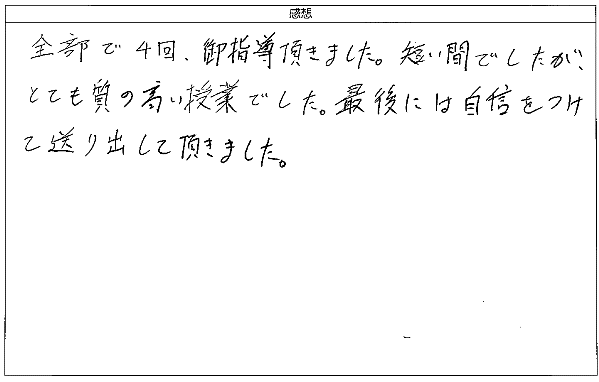 感想
全部で4回、御指導頂きました。短い間でしたが、
とても質の高い授業でした。最後には自信をつけ
て送り出して頂きました。